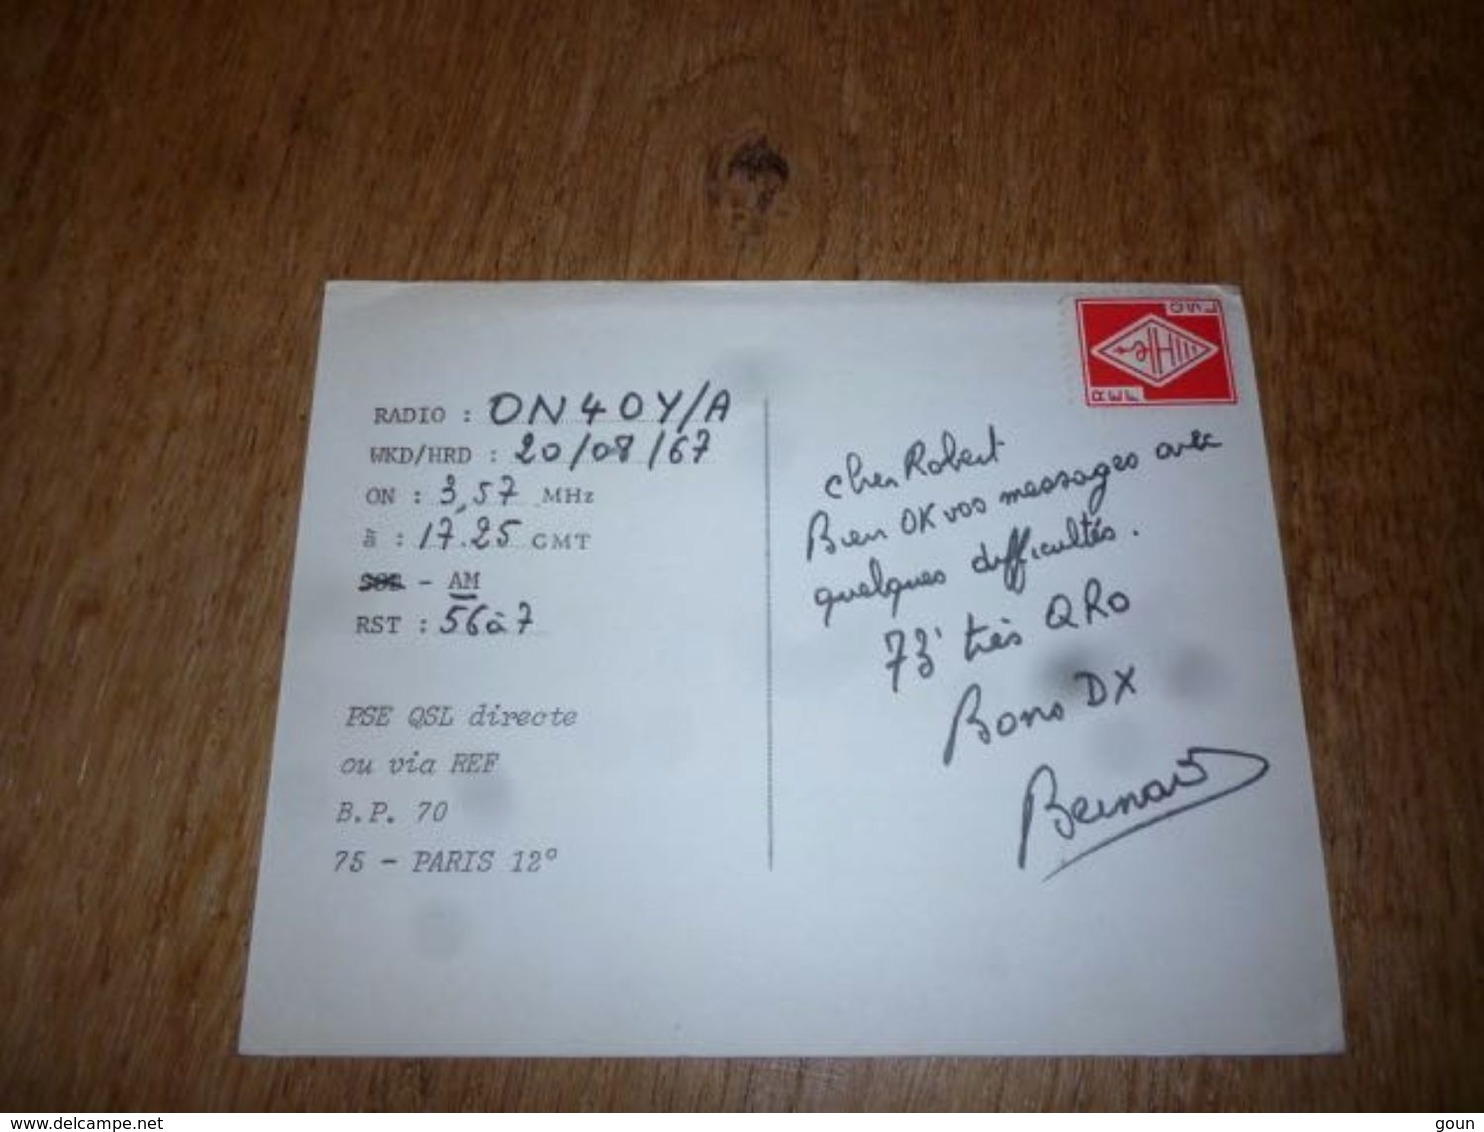 RADIO : ON4OY/A
WKD/HRD : 20/08/67
ON : 3,57 MHz
à : 17.25 GMT
- AM
RST : 56 à 7
PSE QSL directe
ou via REF
B.P. 70
75 - PARIS 12°
REF
Cher Robert
Bien OK vos messages avec
quelques difficultés.
73' très QRO
Bons DX
Bernard
delcampe.net
goun